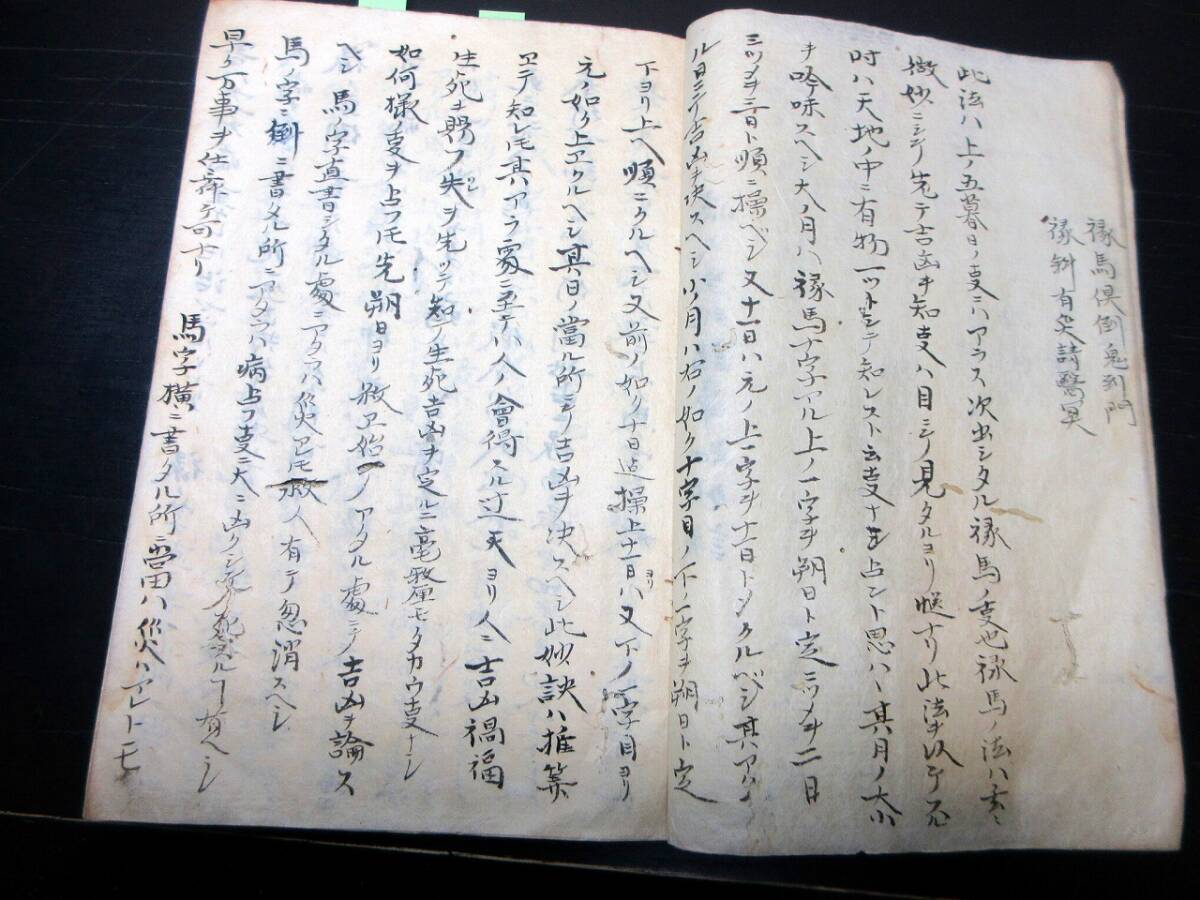 禄馬倶倒鬼到門
禄斜有失請醫
此法ハ上ノ五暮日ノ支ニハアラス次出シタル禄馬ノ支也禄馬ノ法ハ玄々
微妙ニシテ先テ吉凶ヲ知支ハ目ニテ見タルヨリ 此法ヲ以テスル
时ハ天地ノ中ニ有物一ツトシテ知レスト云支ナシ占ント思ハヽ其月ノ大小
ヲ吟味スヘシ大ノ月ハ禄馬十字アル上ノ一字ヲ朔日ト定ニツメヲ二日
三ツメヲ三日ト順ニ操ベシ又十一日ハ元ノ上一字ヲ十一日トシクルベシ其アタ
ル日ニテ吉凶ヲ决スヘシ小ノ月ハ右ノ如ク十字目ノ下ノ一字ヲ朔日ト定
下ヨリ上ヘ順ニクルヘシ又前ノ如ク十日迠操上十一日ヨリハ又下ノ一字目ヨリ
元ノ如ク上エクルヘシ其日ノ當ル所ニテ吉凶ヲ决スヘシ此妙訣ハ推築
ヱテ知レ𪜈其ハアラ衮ニ至テハ人ノ會得スル辻天ヨリ人ニ吉凶禍福
生死ヲ賜フ失ヲ先ツテ知テ生死吉凶ヲ定ルニ毫釐モタカウ支ナシ
如何様支ヲ占フ𪜈先朔日ヨリ数ヱ始テノアタル處ニテ吉凶ヲ論ス
ヘシ 馬ノ字直書シタル處ニアタラハ災アレ𪜈救人有テ忽消スヘシ
馬ノ字ニ倒ニ書タル所ニアタラハ病占フ支ニ大ニ凶クシテ 有ヘシ
早ク万事ヲ仕舞テ可ナリ 馬字横ニ書タル所ニ當ハ災ハアレトモ